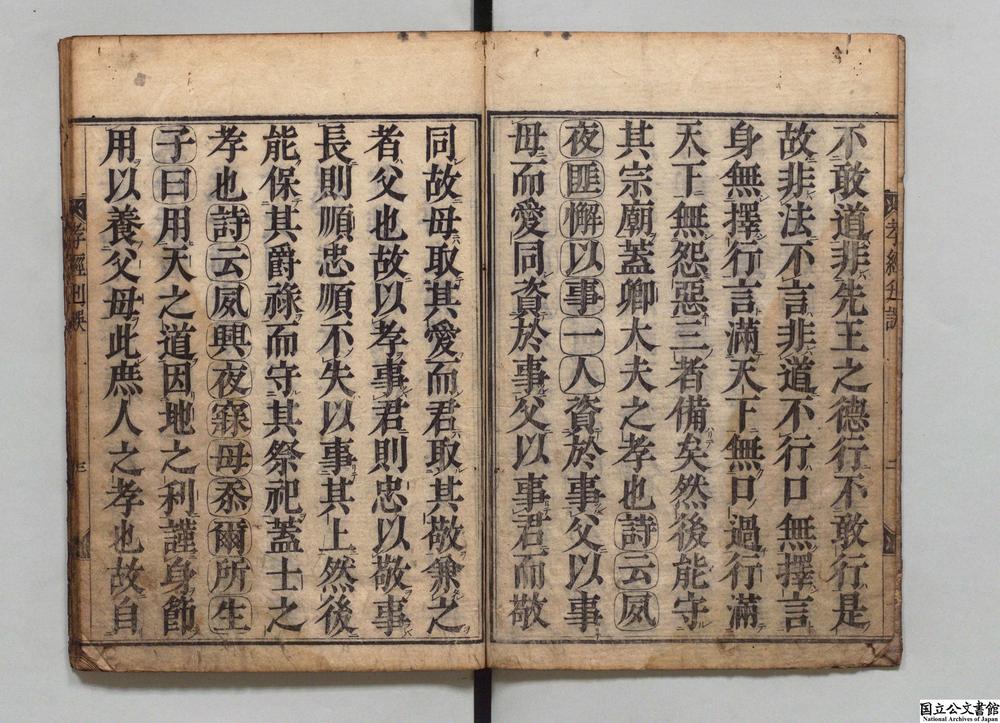 不敢道非先王之德行不敢行是
故非法不言非道不行口無擇言
身無擇行言滿天下無口過行滿
天下無怨惡三者備矣然後能守
其宗廟蓋卿大夫之孝也詩云夙
夜匪懈以事一人資於事父以事
母而愛同資於事父以事君而敬
同故母取其愛而君取其敬兼之
者父也故以孝事君則忠以敬事
長則順忠順不失以事其上然後
能保其爵祿而守其祭祀蓋士之
孝也詩云夙興夜寐毋忝爾所生
子曰用天之道因地之利謹身節
用以養父母此庶人之孝也故自
孝經刊誤
二
孝經刊誤
三
国立公文書館
National Archives of Japan